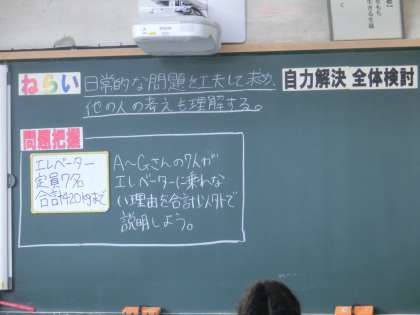 ねらい
日常的な問題を工夫して求め、
他の人の考えも理解する。
自力解決 全体検討
問題把握
エレベーター
定員7名
合計420kgまで
A〜Gさんの7人が
エレベーターに乗れな
い理由を合計以外で
説明しよう。